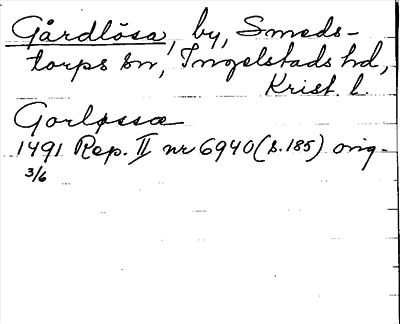 Gårdlösa, by, Smeds-
torps sn, Ingelstads hd,
Krist. l.
Gorløssæ
1491 Rep. II nr 6940 (s. 185) orig.
3/6